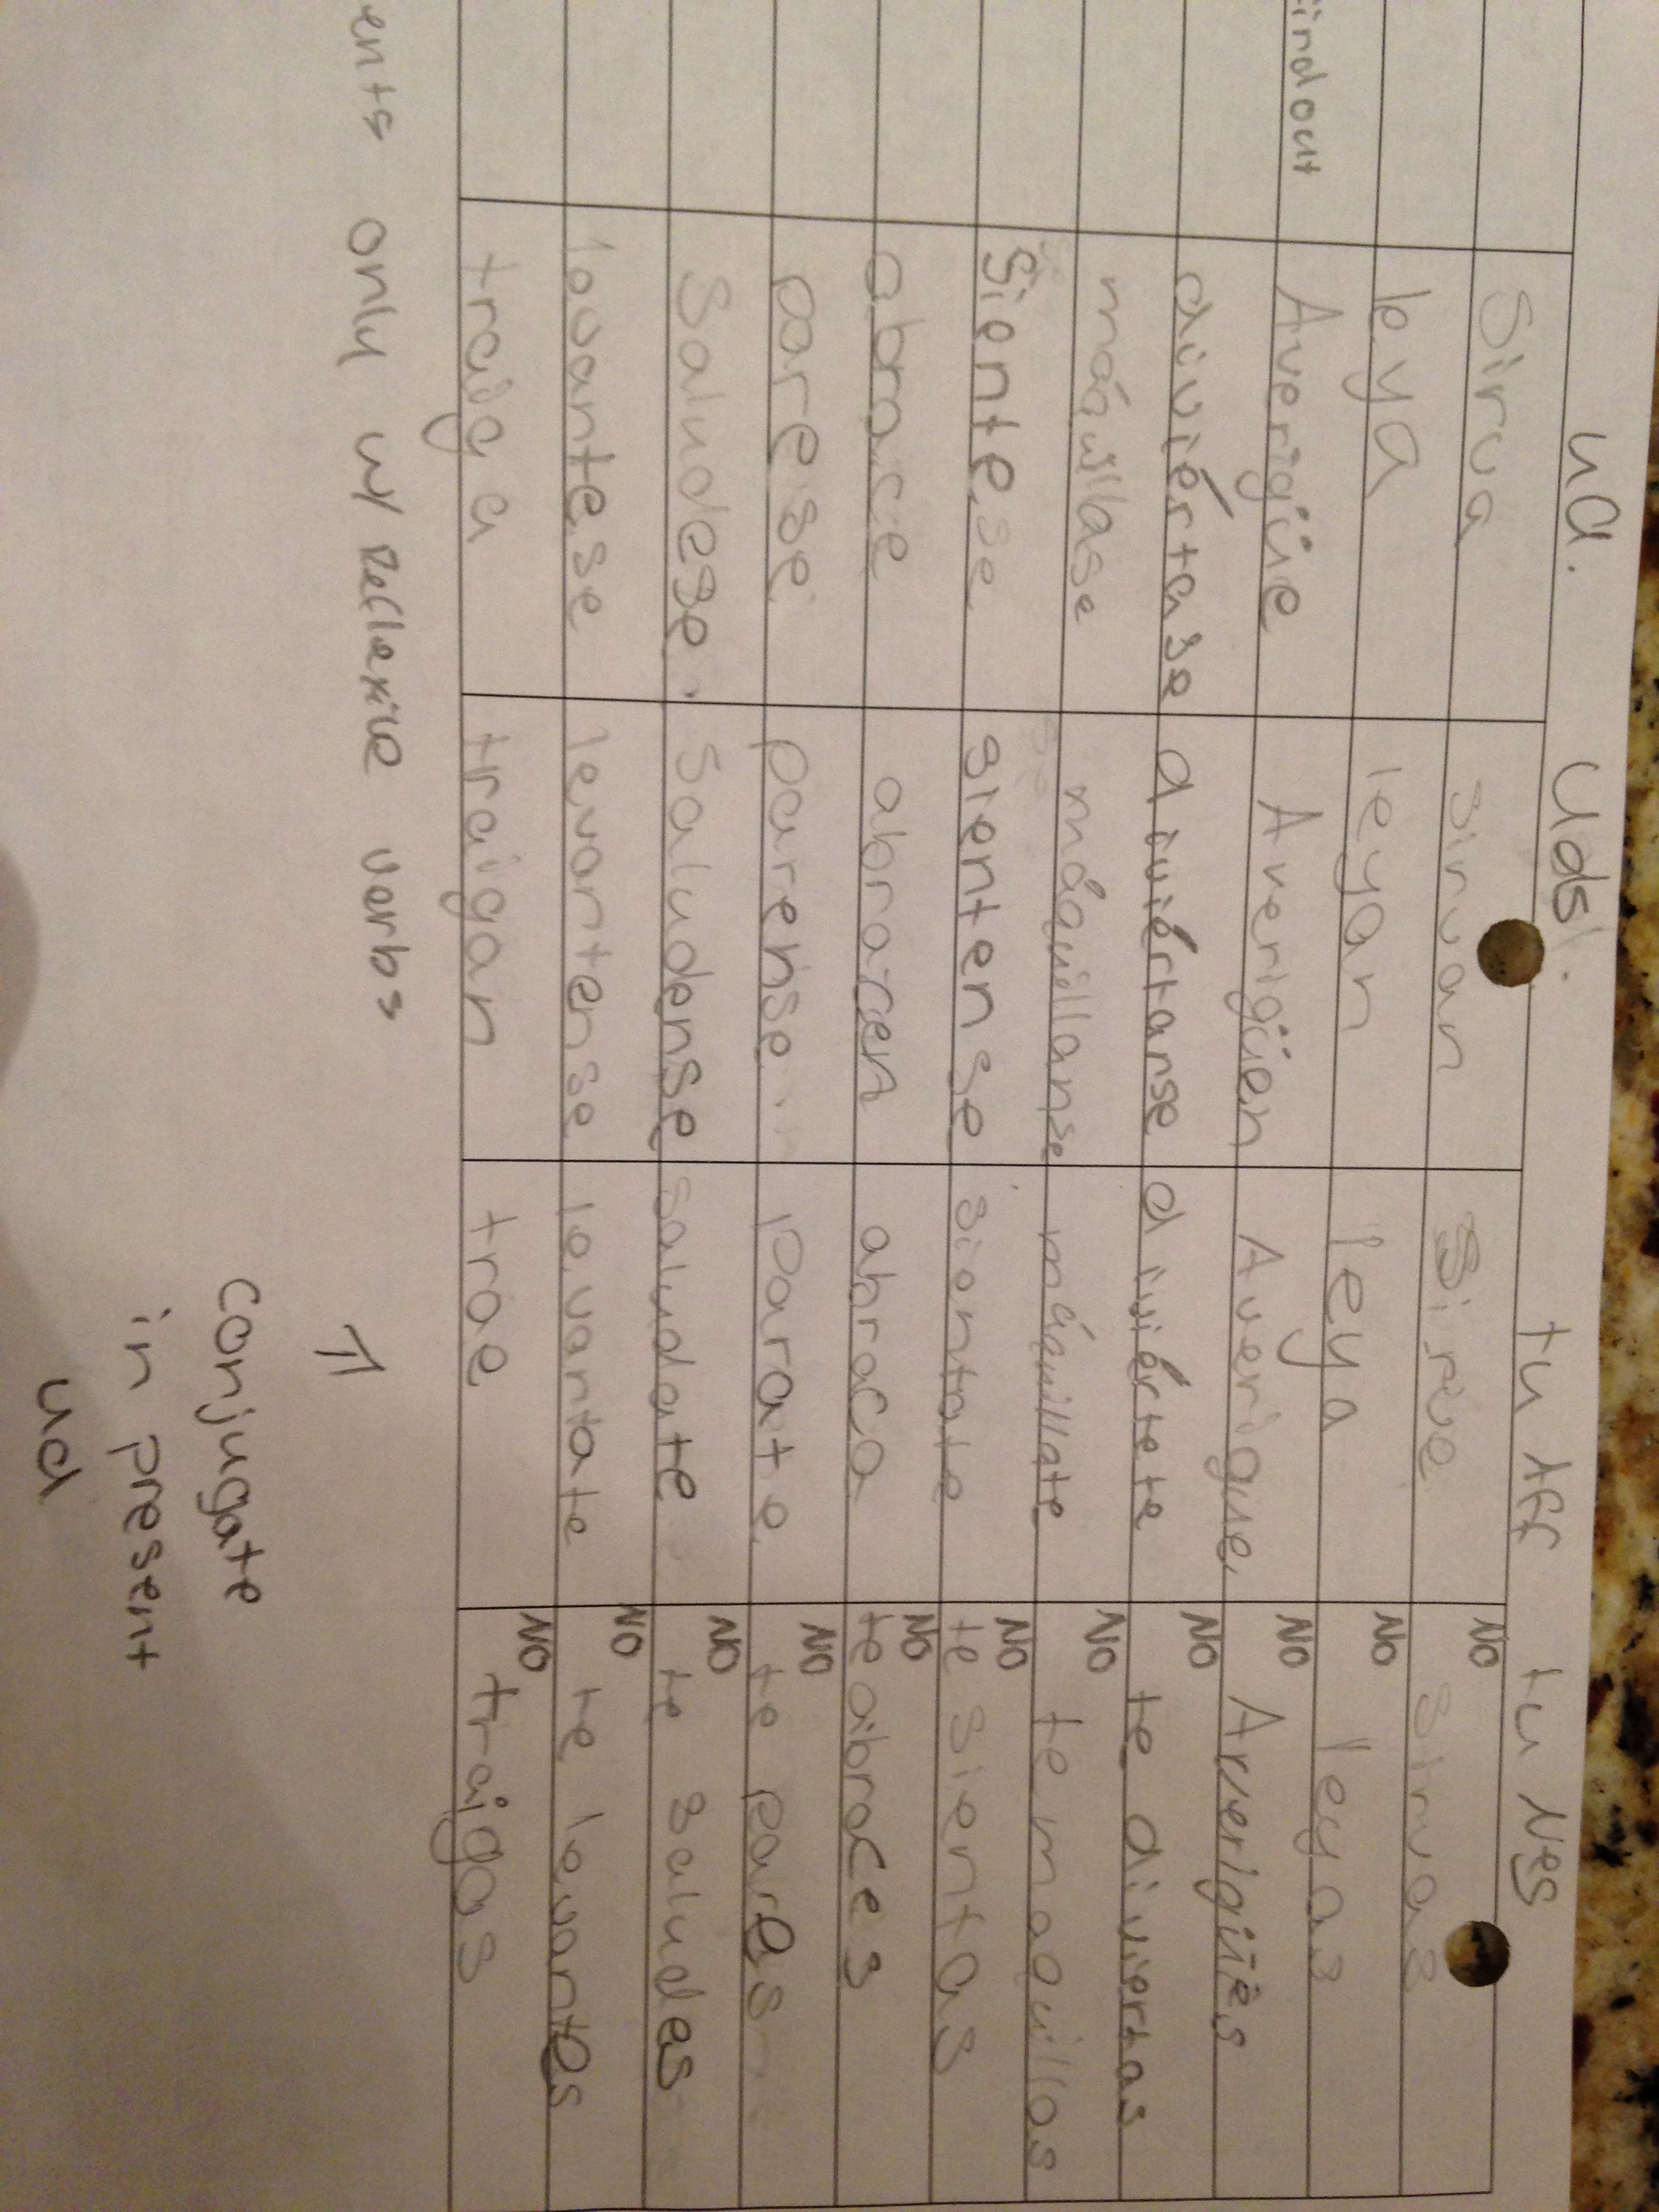 ud. Uds. tu Aff tu Neg
Sirva sirvan Sirve NO sirvas
leya leyan leya NO leyas
findout Averigüe Averigüen Averigue NO Averigües
diviértase diviértanse diviértete NO te diviertas
máquillase máquillanse máquillate NO te maquillas
Sientese sientense sientate NO te sientas
abrace abracen abraca NO te abraces
parese parense parate NO te pares
Saludese Saludense saludate NO te saludes
levantese levantense levantate NO te levantes
traiga traigan trae NO traigas
ents only w/ Reflexive verbs
↑
conjugate
in present
ud